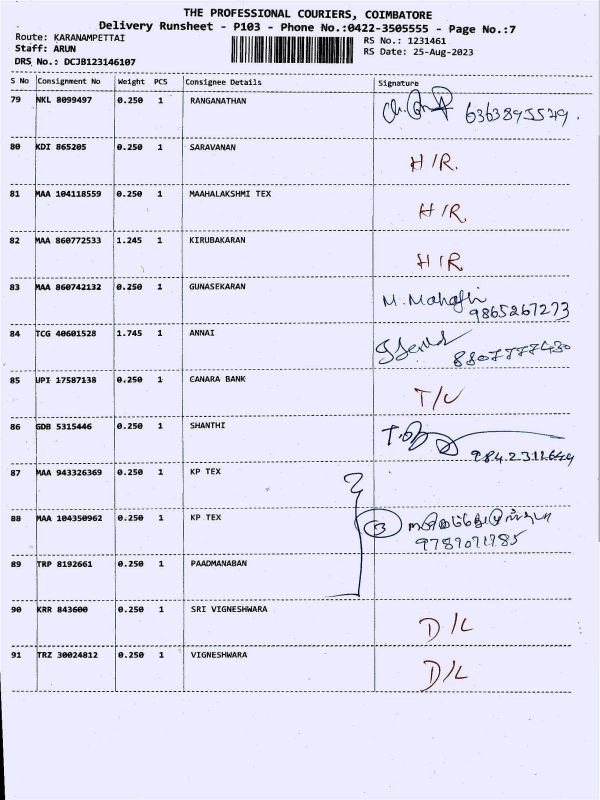 THE PROFESSIONAL COURIERS, COIMBATORE
Delivery Runsheet - P103 - Phone No.:0422-3505555 - Page No.:7
Route: KARANAMPETTAI RS No.: 1231461
Staff: ARUN RS Date: 25-Aug-2023
DRS No.: DCJB123146107
S No Consignment No Weight PCS Consignee Details Signature
79 NKL 8099497 0.250 1 RANGANATHAN
6363895529.
80 KDI 865205 0.250 1 SARAVANAN H/R.
81 MAA 104118559 0.250 1 MAAHALAKSHMI TEX H/R
82 MAA 860772533 1.245 1 KIRUBAKARAN H/R
83 MAA 860742132 0.250 1 GUNASEKARAN M.
9865267273
84 TCG 40601528 1.745 1 ANNAI
8807777430
85 UPI 17587138 0.250 1 CANARA BANK T/L
86 GDB 5315446 0.250 1 SHANTHI
87 MAA 943326369 0.250 1 KP TEX
88 MAA 104350962 0.250 1 KP TEX 3
89 TRP 8192661 0.250 1 PAADMANABAN
90 KRR 843600 0.250 1 SRI VIGNESHWARA D/L
91 TRZ 30024812 0.250 1 VIGNESHWARA D/L